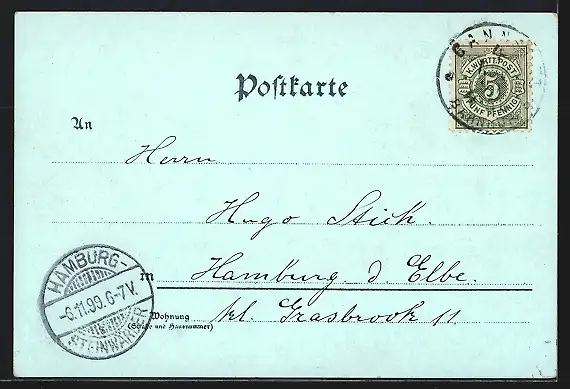 Postkarte
CANN
K. WÜRTT. POST
5
FÜNF PFENNIG
An
Herrn
Hugo Stick.
in Hamburg d Elbe.
HAMBURG-
-6.11.99.6-7V.
STEINWÄRDER
Wohnung
(Straße und Hausnummer)
kl. Grasbrook 11